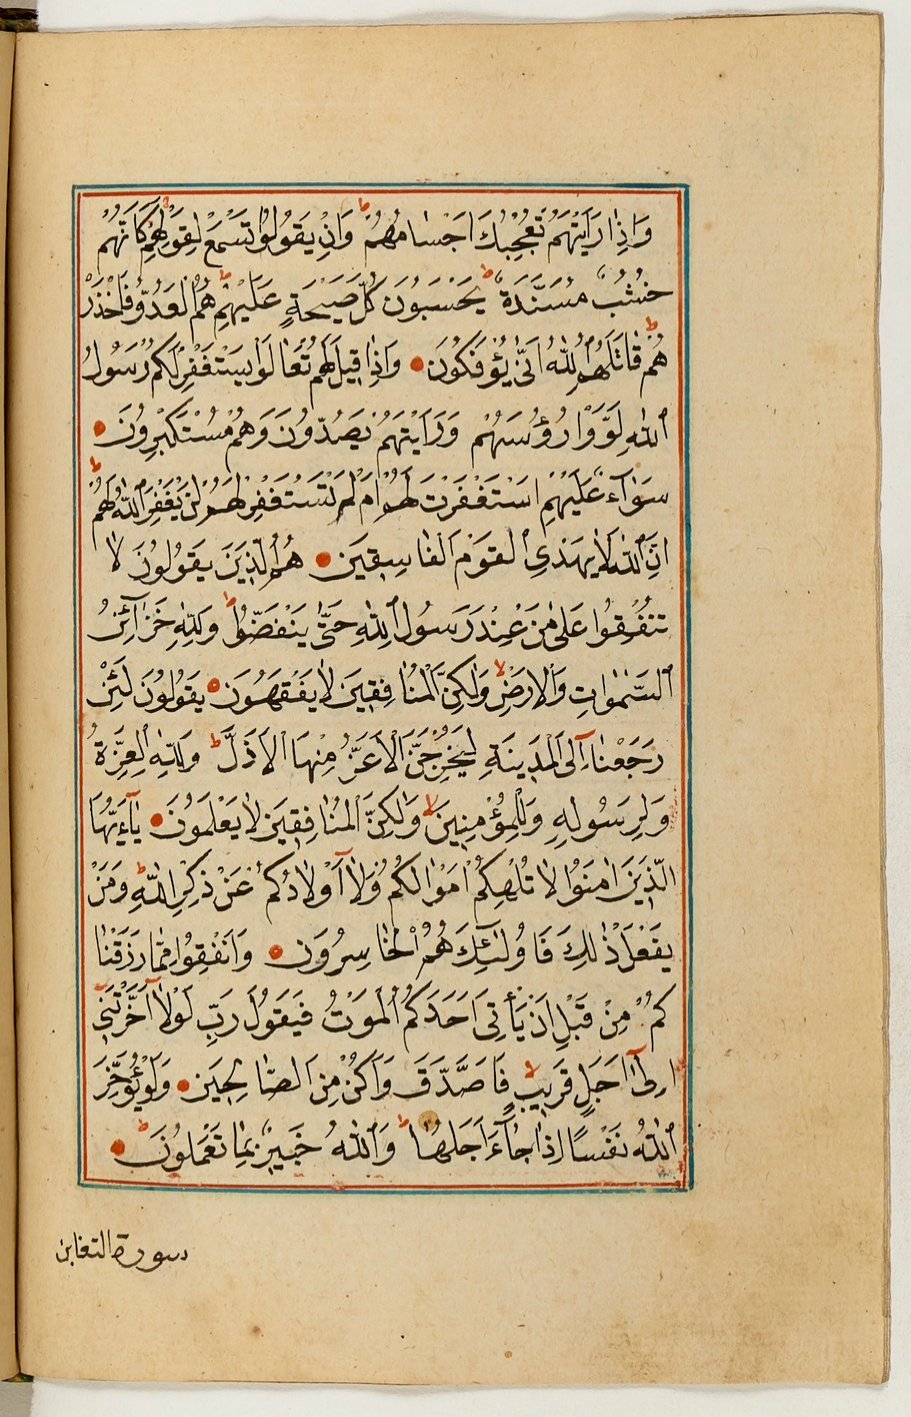 وَاِذَا رَاَيْتَهُمْ تُعْجِبُكَ اَجْسَامُهُمْ ط وَاِنْ يَقُولُوا تَسْمَعْ لِقَوْلِهِمْ كَاَنَّهُمْ
خُشُبٌ مُسَنَّدَةٌ ط يَحْسَبُونَ كُلَّ صَيْحَةٍ عَلَيْهِمْ ط هُمُ الْعَدُوُّ فَاحْذَرْ
هُمْ ط قَاتَلَهُمُ اللّٰهُ اَنّٰى يُؤْفَكُونَ وَاِذَا قِيلَ لَهُمْ تَعَالَوْا يَسْتَغْفِرْ لَكُمْ رَسُولُ
اللّٰهِ لَوَّوْا رُؤُسَهُمْ وَرَاَيْتَهُمْ يَصُدُّونَ وَهُمْ مُسْتَكْبِرُونَ
سَوَآءٌ عَلَيْهِمْ اَسْتَغْفَرْتَ لَهُمْ اَمْ لَمْ تَسْتَغْفِرْ لَهُمْ لَنْ يَغْفِرَ اللّٰهُ لَهُمْ ط
اِنَّ اللّٰهَ لَا يَهْدِى الْقَوْمَ الْفَاسِقِينَ هُمُ الَّذِينَ يَقُولُونَ لَا
تُنْفِقُوا عَلٰى مَنْ عِنْدَ رَسُولِ اللّٰهِ حَتّٰى يَنْفَضُّوا ط وَلِلّٰهِ خَزَآئِنُ
السَّمٰوَاتِ وَالْاَرْضِ لا وَلٰكِنَّ الْمُنَافِقِينَ لَا يَفْقَهُونَ يَقُولُونَ لَئِنْ
رَجَعْنَا اِلَى الْمَدِينَةِ لَيُخْرِجَنَّ الْاَعَزُّ مِنْهَا الْاَذَلَّ ط وَلِلّٰهِ الْعِزَّةُ
وَلِرَسُولِهِ وَلِلْمُؤْمِنِينَ لا وَلٰكِنَّ الْمُنَافِقِينَ لَا يَعْلَمُونَ يَآ اَيُّهَا
الَّذِينَ اٰمَنُوا لَا تُلْهِكُمْ اَمْوَالُكُمْ وَلَآ اَوْلَادُكُمْ عَنْ ذِكْرِ اللّٰهِ ط وَمَنْ
يَفْعَلْ ذٰلِكَ فَاُولٰئِكَ هُمُ الْخَاسِرُونَ وَاَنْفِقُوا مِمَّا رَزَقْنَا
كُمْ مِنْ قَبْلِ اَنْ يَأْتِىَ اَحَدَكُمُ الْمَوْتُ فَيَقُولَ رَبِّ لَوْلَآ اَخَّرْتَنِىٓ
اِلٰٓى اَجَلٍ قَرِيبٍ لا فَاَصَّدَّقَ وَاَكُنْ مِنَ الصَّالِحِينَ وَلَنْ يُؤَخِّرَ
اللّٰهُ نَفْسًا اِذَا جَآءَ اَجَلُهَا ط وَاللّٰهُ خَبِيرٌ بِمَا تَعْمَلُونَ ط
سورة التغابن